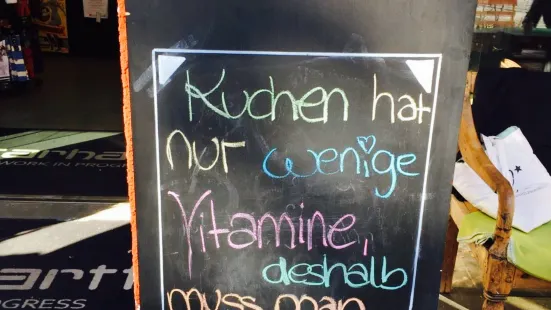 Kuchen hat
nur wenige
Vitamine,
deshalb
muss man
carhartt
WORK IN PROGRESS
PROGRESS